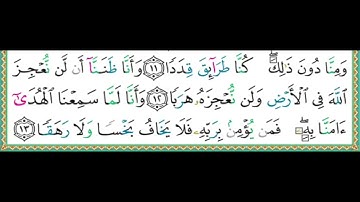 وَمِنَّا دُونَ ذَٰلِكَ ۖ كُنَّا طَرَآئِقَ قِدَدًا ۝١١ وَأَنَّا ظَنَنَّآ أَن لَّن نُّعْجِزَ
اللَّهَ فِي الْأَرْضِ وَلَن نُّعْجِزَهُۥ هَرَبًا ۝١٢ وَأَنَّا لَمَّا سَمِعْنَا الْهُدَىٰٓ
ءَامَنَّا بِهِۦ ۖ فَمَن يُؤْمِنۢ بِرَبِّهِۦ فَلَا يَخَافُ بَخْسًا وَلَا رَهَقًا ۝١٣